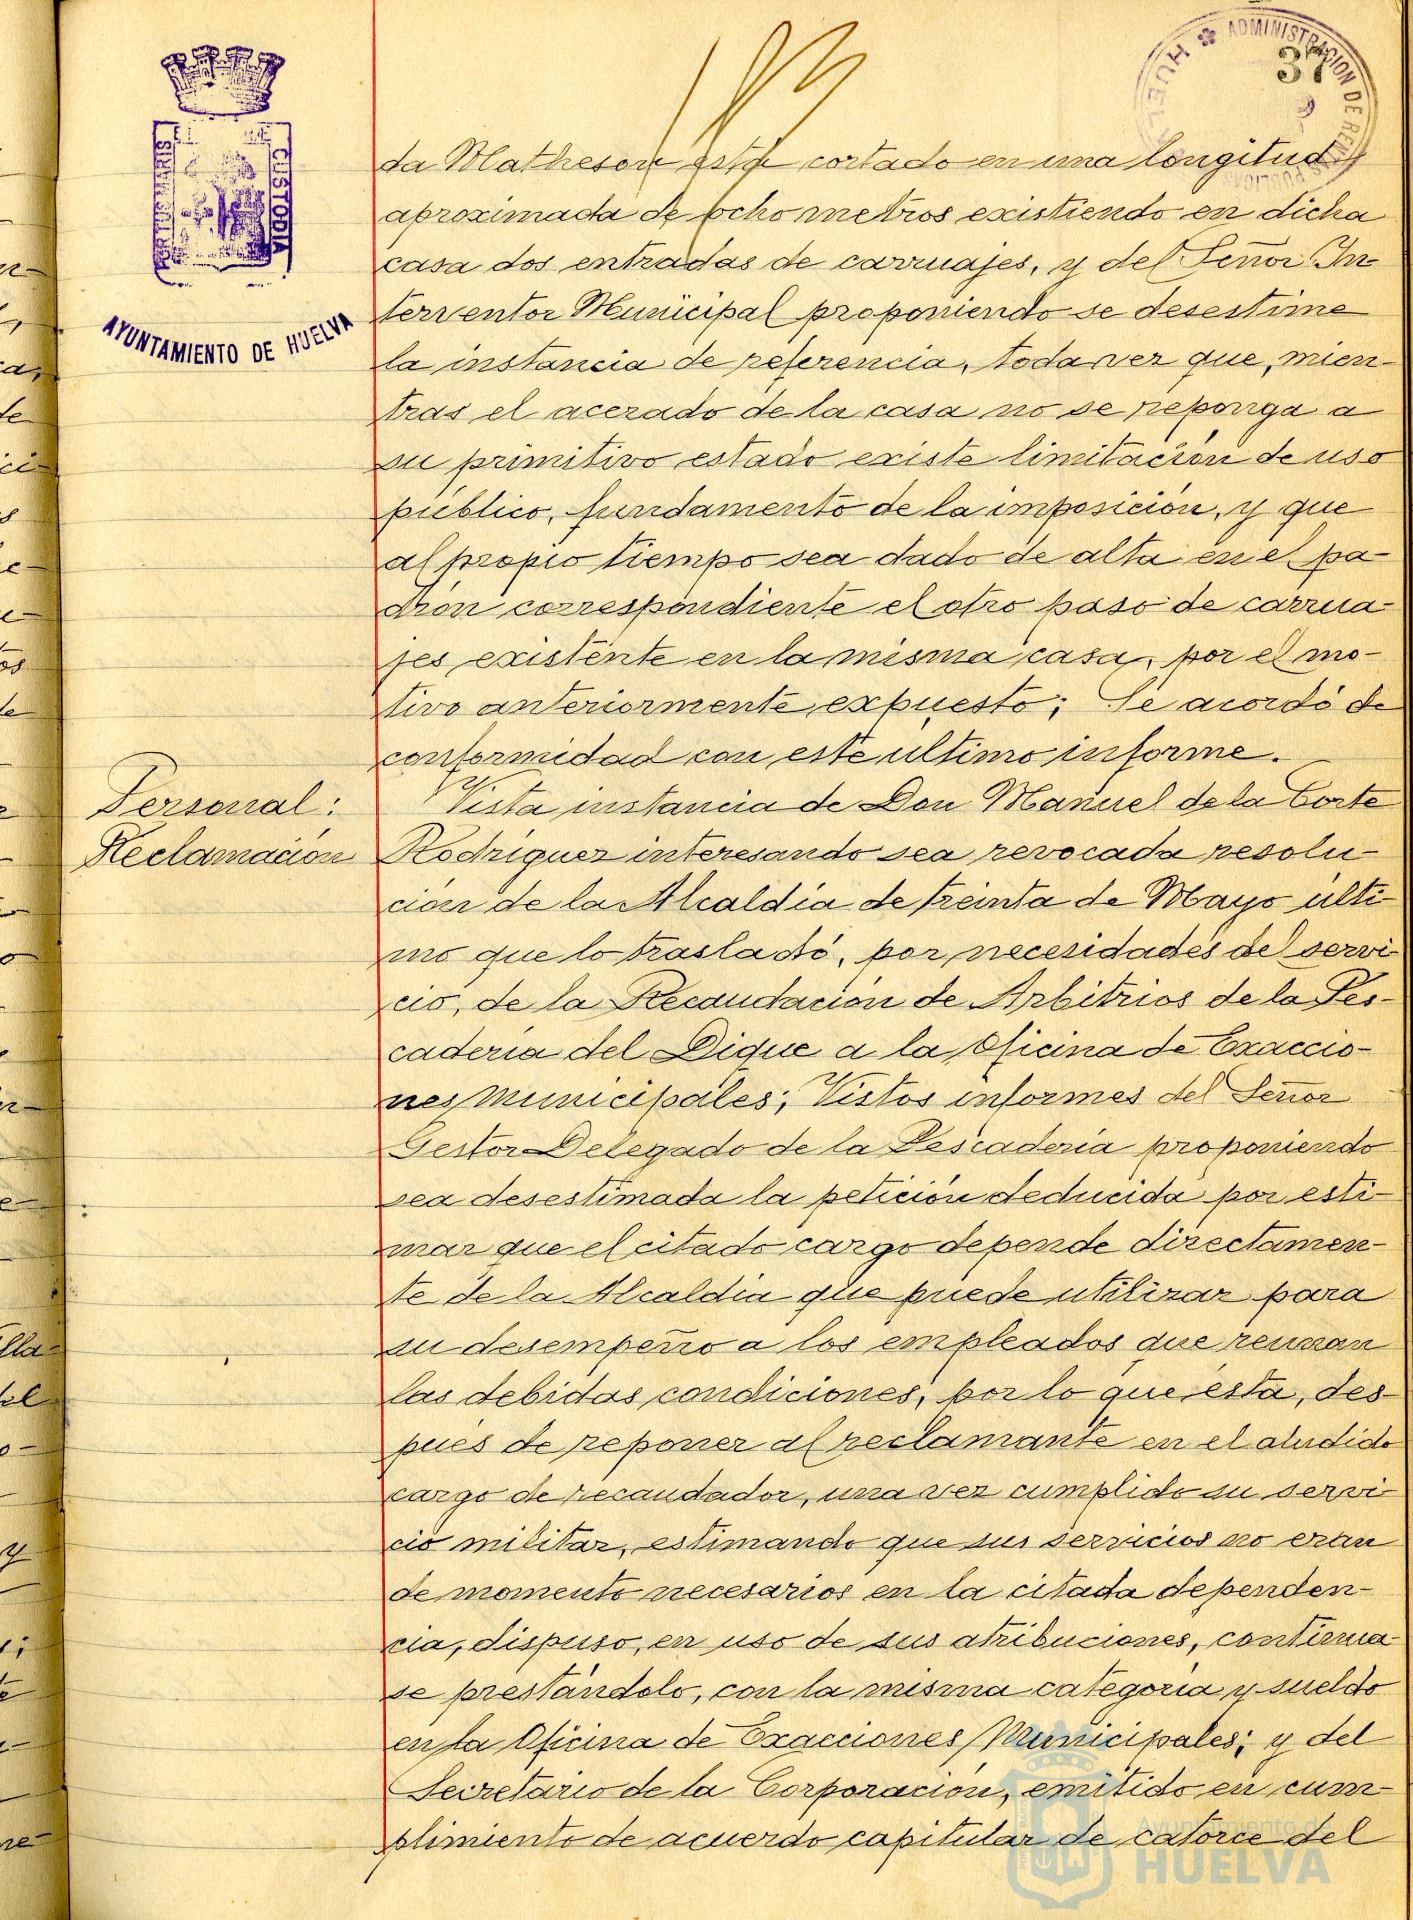 ADMINISTRACION DE RENTAS PUBLICAS
HUELVA
37
PORTUS MARIS
CUSTODIA
AYUNTAMIENTO DE HUELVA
da Matheson está cortado en una longitud
aproximada de ocho metros existiendo en dicha
casa dos entradas de carruajes, y del Señor In-
terventor Municipal proponiendo se desestime
la instancia de referencia, toda vez que, mien-
tras el acerado de la casa no se reponga a
su primitivo estado existe limitación de uso
público, fundamento de la imposición, y que
al propio tiempo sea dado de alta en el pa-
drón correspondiente el otro paso de carrua-
jes existente en la misma casa, por el mo-
tivo anteriormente expuesto; Se acordó de
conformidad con este último informe.
Personal:
Reclamación
Vista instancia de Don Manuel de la Corte
Rodríguez interesando sea revocada resolu-
ción de la Alcaldía de treinta de Mayo últi-
mo que lo trasladó, por necesidades del servi-
cio, de la Recaudación de Arbitrios de la Pes-
cadería del Dique a la Oficina de Exaccio-
nes Municipales; Vistos informes del Señor
Gestor Delegado de la Pescadería proponiendo
sea desestimada la petición deducida por esti-
mar que el citado cargo depende directamen-
te de la Alcaldía que puede utilizar para
su desempeño a los empleados que reunan
las debidas condiciones, por lo que ésta, des-
pués de reponer al reclamante en el aludido
cargo de recaudador, una vez cumplido su servi-
cio militar, estimando que sus servicios no eran
de momento necesarios en la citada dependen-
cia, dispuso, en uso de sus atribuciones, continua-
se prestándolo, con la misma categoría y sueldo
en la Oficina de Exacciones Municipales; y del
Secretario de la Corporación, emitido en cum-
plimiento de acuerdo capitular de catorce del
Ayuntamiento de
HUELVA